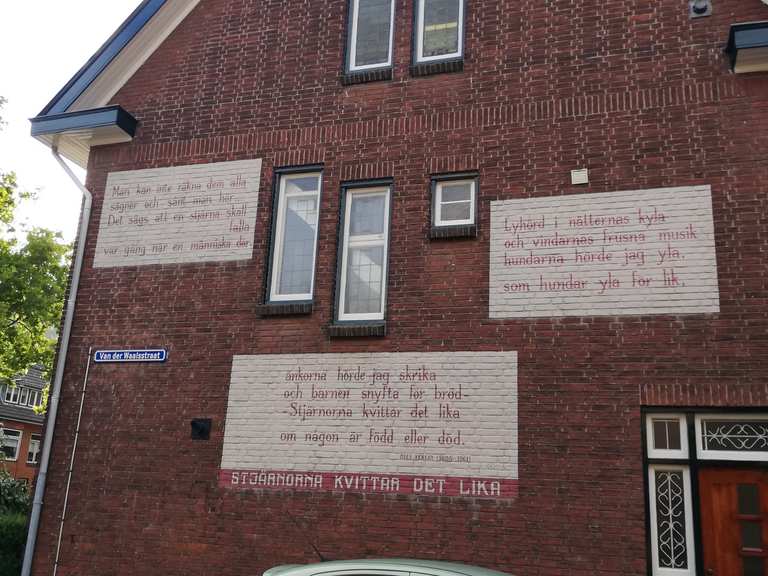 Man kan inte räkna dem alla
sägner och sånt man hör.
Det sägs att en stjärna skall
falla
var gång när en människa dör.
Lyhörd i nätternas kyla
och vindarnas frusna musik
hundarna hörde jag yla,
som hundar yla för lik,
änkorna hörde jag skrika
och barnen snyfta för bröd-
-Stjärnorna kvittar det lika
om någon är född eller död.
NILS FERLIN (1898-1961)
STJÄRNORNA KVITTAR DET LIKA
Van der Waalsstraat